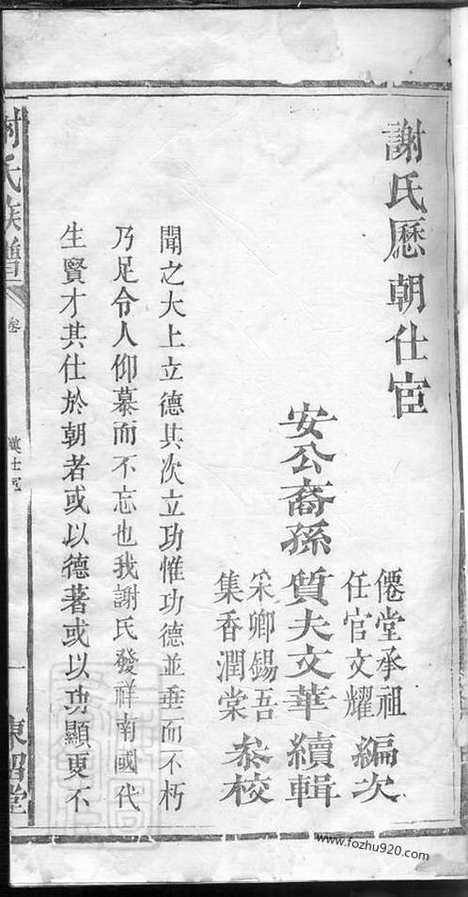 謝氏歷朝仕宦
僊堂承祖
任官文耀
編次
安公裔孫
質夫文華
續輯
采卿錫吾
集香潤棠
叅校
聞之大上立德其次立功惟功德並垂而不朽
乃足令人仰慕而不忘也我謝氏發祥南國代
生賢才其仕於朝者或以德著或以功顯更不
謝氏族譜
卷
東昭堂
www.fozhu920.com